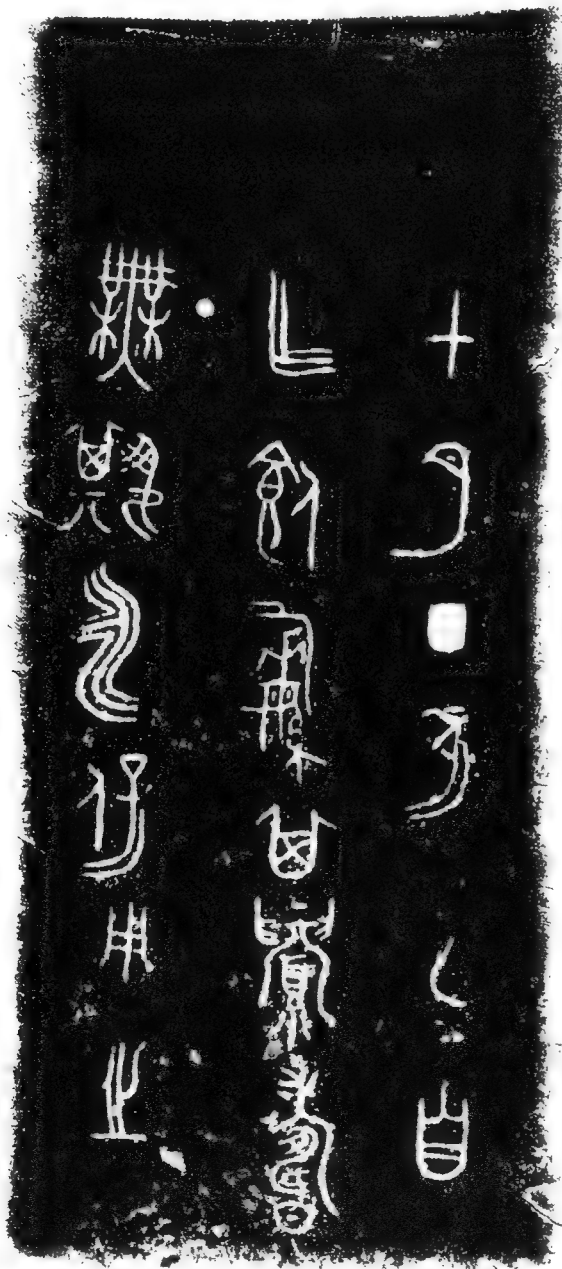 七月丁亥乙自
乍飤其眉壽
無期永保用之